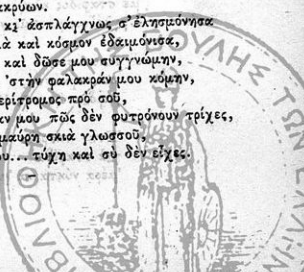 κρύων.
κι' ἀσπλάγχνως σ' ἐλησμόνησα
ὰ καὶ κόσμον ἐδαιμόνισα,
καὶ δῶσε μου συγγνώμην,
'στὴν φαλακράν μου κόμην,
ερίτρομος πρὸ σοῦ,
ν μου πῶς δὲν φυτρόνουν τρίχες,
μαύρη σκιὰ γλωσσοῦ,
υ... τύχη καὶ σὺ δὲν εἶχες.